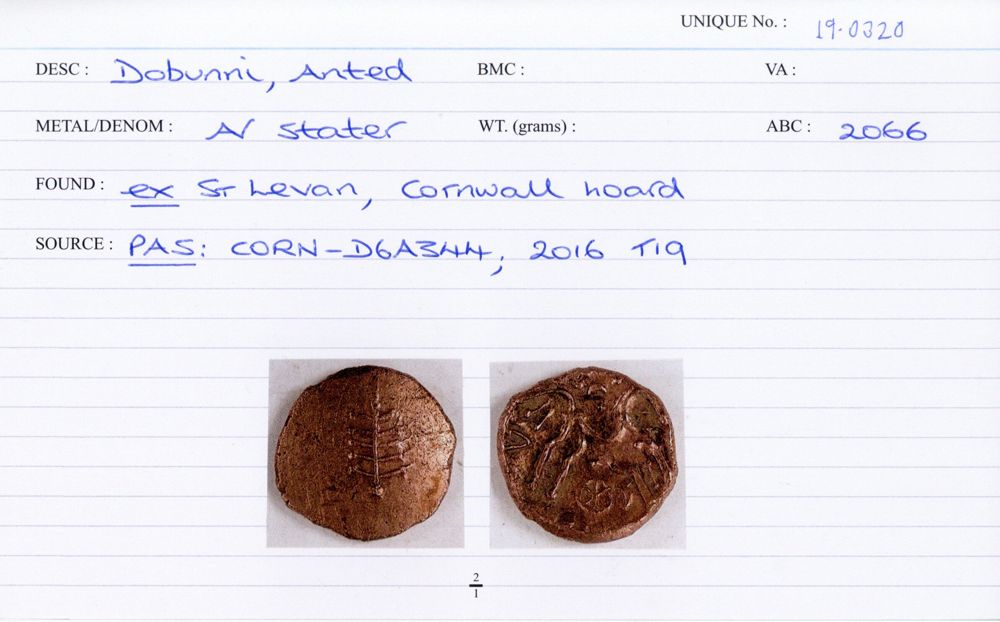 UNIQUE No. : 19.0320
DESC : Dobunni, Anted BMC : VA :
METAL/DENOM : AV stater WT. (grams) : ABC : 2066
FOUND : ex St Levan, Cornwall hoard
SOURCE : PAS: CORN-D6A344, 2016 T19
2
1